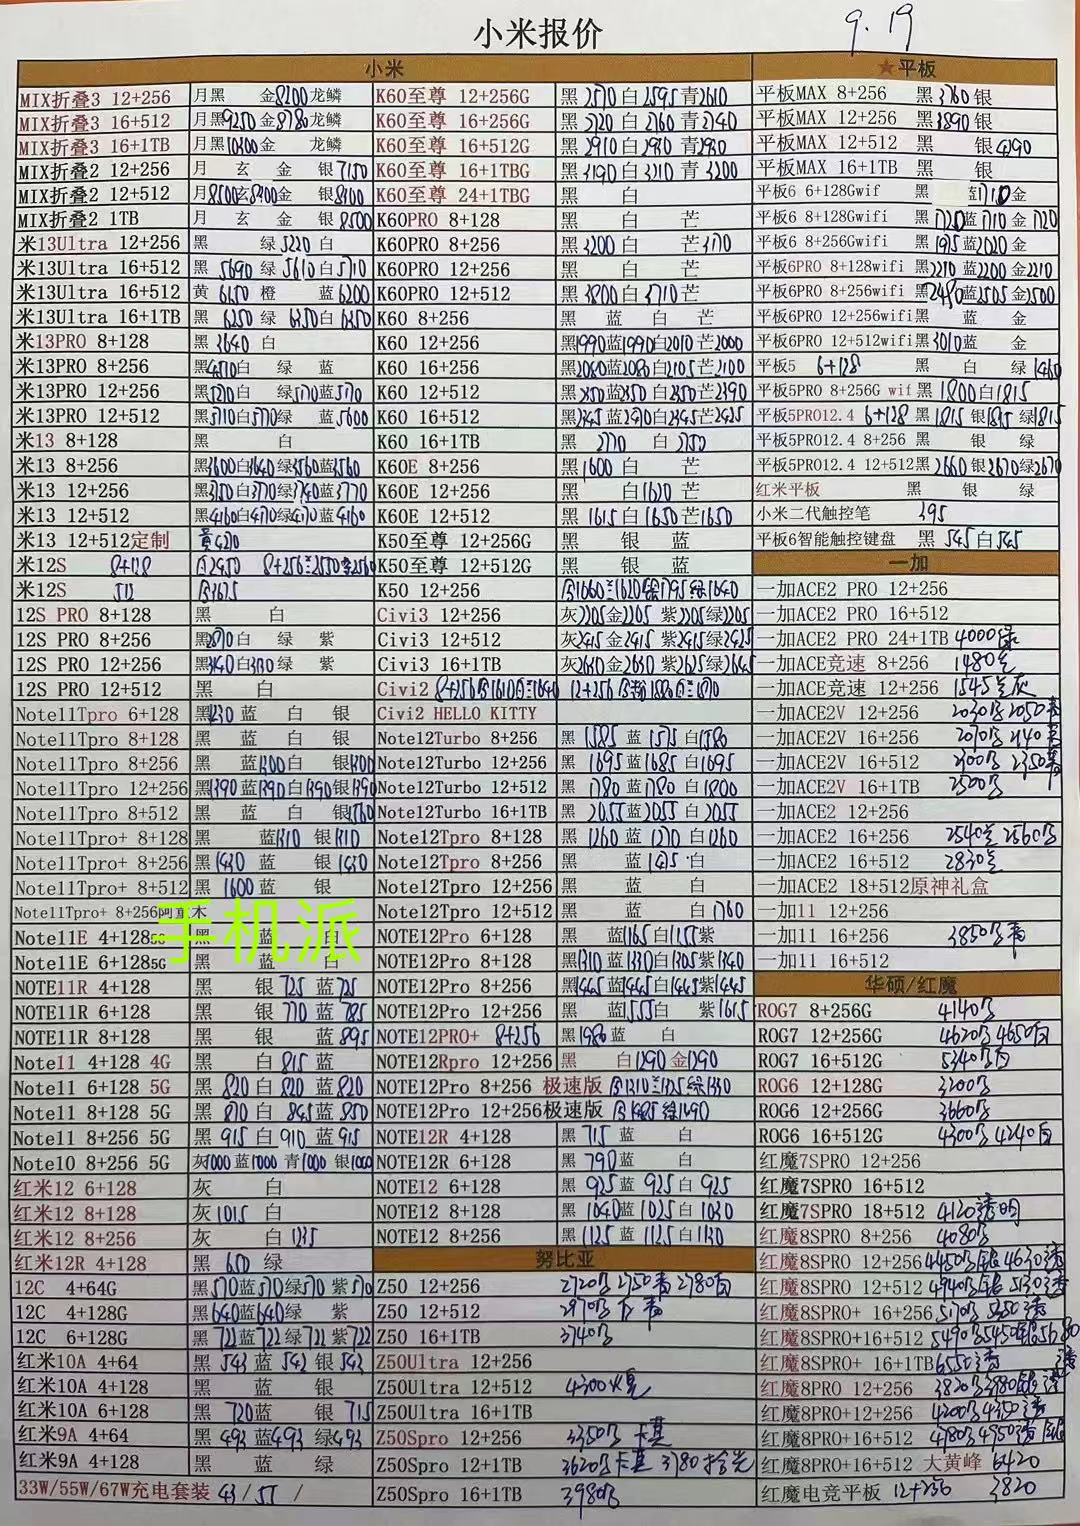 小米报价
9.19
小米
MIX折叠3 12+256 月黑 金8200龙鳞
MIX折叠3 16+512 月黑9250金8780龙鳞
MIX折叠3 16+1TB 月黑10300金 龙鳞
MIX折叠2 12+256 月 玄 金 银7150
MIX折叠2 12+512 月8500玄8400金 银8400
MIX折叠2 1TB 月 玄 金 银8500
米13Ultra 12+256 黑 绿5220白
米13Ultra 16+512 黑5690绿5610白5710
米13Ultra 16+512 黄6650橙 蓝6200
米13Ultra 16+1TB 黑6250绿6350白6350
米13PRO 8+128 黑3640白
米13PRO 8+256 黑 白 绿 蓝
米13PRO 12+256 黑 白 绿5170蓝5170
米13PRO 12+512 黑 白 绿 蓝5600
米13 8+128 黑 白
米13 8+256 黑3600白3640绿3560蓝3560
米13 12+256 黑3750白3770绿3740蓝3770
米13 12+512 黑4160白4170绿4170蓝4160
米13 12+512定制
米12S 8+128
米12S 512
12S PRO 8+128 黑 白
12S PRO 8+256 黑 白 绿 紫
12S PRO 12+256 黑 白 绿 紫
12S PRO 12+512 黑 白
Note11Tpro 6+128 黑1230蓝 白 银
Note11Tpro 8+128 黑 蓝 白 银
Note11Tpro 8+256 黑 蓝1300白 银1300
Note11Tpro 12+256 黑1390蓝1390白1390银1390
Note11Tpro 8+512 黑 蓝 白 银1560
Note11Tpro+ 8+128 黑 蓝1310银1310
Note11Tpro+ 8+256 黑1430蓝 银1430
Note11Tpro+ 8+512 黑1600蓝 银
Note11Tpro+ 8+256阿童木
手机派
Note11E 4+1285G 黑 蓝 白
Note11E 6+1285G 黑 蓝 白
NOTE11R 4+128 黑 银725蓝725
NOTE11R 6+128 黑 银770蓝785
NOTE11R 8+128 黑 银 蓝895
Note11 4+128 4G 黑 白815蓝
Note11 6+128 5G 黑820白820蓝820
Note11 8+128 5G 黑870白845蓝850
Note11 8+256 5G 黑915白910蓝915
Note10 8+256 5G 灰1000蓝1000青1000银1000
红米12 6+128 灰 白
红米12 8+128 灰1015白
红米12 8+256 灰 白1235
红米12R 4+128 黑650绿
12C 4+64G 黑570蓝570绿570紫570
12C 4+128G 黑640蓝640绿 紫
12C 6+128G 黑722蓝722绿722紫722
红米10A 4+64 黑543蓝542银543
红米10A 4+128 黑 蓝 银
红米10A 6+128 黑720蓝 银715
红米9A 4+64 黑493蓝493绿493
红米9A 4+128 黑 蓝 绿
33W/55W/67W充电套装 43/55/
K60至尊 12+256G 黑2570白2595青2610
K60至尊 16+256G 黑2720白2760青2740
K60至尊 16+512G 黑2910白2930青2930
K60至尊 16+1TBG 黑3190白3210青3200
K60至尊 24+1TBG 黑 白
K60PRO 8+128 黑 白 芒
K60PRO 8+256 黑3200白 芒3170
K60PRO 12+256 黑 白 芒
K60PRO 12+512 黑3800白3710芒
K60 8+256 黑 蓝 白 芒
K60 12+256 黑1990蓝1990白2010芒2000
K60 16+256 黑2080蓝2080白2105芒2100
K60 12+512 黑2350蓝2350白2350芒2390
K60 16+512 黑2445蓝2420白2445芒2425
K60 16+1TB 黑2770白2750
K60E 8+256 黑1600白 芒
K60E 12+256 黑 白1620芒
K60E 12+512 黑1615白1650芒1650
K50至尊 12+256G 黑 银 蓝
K50至尊 12+512G 黑 银 蓝
K50 12+256
Civi3 12+256 灰2205金2205紫2205绿2205
Civi3 12+512 灰2415金2415紫2415绿2425
Civi3 16+1TB 灰2630金2630紫2625绿2645
Civi2 8+256 12+256
Civi2 HELLO KITTY
Note12Turbo 8+256 黑1585蓝1575白1580
Note12Turbo 12+256 黑1695蓝1685白1695
Note12Turbo 12+512 黑1780蓝1780白1800
Note12Turbo 16+1TB 黑2055蓝2055白2055
Note12Tpro 8+128 黑1260蓝1270白1260
Note12Tpro 8+256 黑 蓝1475白
Note12Tpro 12+256 黑 蓝 白
Note12Tpro 12+512 黑 蓝 白1760
NOTE12Pro 6+128 黑 蓝1165白1155紫
NOTE12Pro 8+128 黑1310蓝1330白1305紫1340
NOTE12Pro 8+256 黑1445蓝1445白1445紫1445
NOTE12Pro 12+256 黑 蓝1555白 紫1615
NOTE12PRO+ 8+256 黑1980蓝 白
NOTE12Rpro 12+256 黑 白1290金1290
NOTE12Pro 8+256 极速版
NOTE12Pro 12+256极速版
NOTE12R 4+128 黑715蓝 白
NOTE12R 6+128 黑790蓝 白
NOTE12 6+128 黑925蓝925白925
NOTE12 8+128 黑1040蓝1025白1030
NOTE12 8+256 黑1125蓝1125白1130
努比亚
Z50 12+256 2720 2750青 2780白
Z50 12+512 2970
Z50 16+1TB 3740
Z50Ultra 12+256
Z50Ultra 12+512 4300
Z50Ultra 16+1TB
Z50Spro 12+256 3350 卡其
Z50Spro 12+1TB 3620 卡其 3780
Z50Spro 16+1TB 3980
★平板
平板MAX 8+256 黑3760银
平板MAX 12+256 黑3890银
平板MAX 12+512 黑 银4290
平板MAX 16+1TB 黑 银
平板6 6+128Gwif 黑 蓝1710金
平板6 8+128Gwifi 黑1720蓝1710金1720
平板6 8+256Gwifi 黑1975蓝2020金
平板6PRO 8+128wifi 黑2210蓝2200金2210
平板6PRO 8+256wifi 黑2480蓝2505金2500
平板6PRO 12+256wifi黑 蓝 金
平板6PRO 12+512wifi黑3010蓝 金
平板5 6+128 黑 白 绿1460
平板5PRO 8+256G wif 黑1800白1815
平板5PRO12.4 6+128 黑1815银1895绿1815
平板5PRO12.4 8+256 黑 银 绿
平板5PRO12.4 12+512黑2660银2670绿2670
红米平板 黑 银 绿
小米二代触控笔 395
平板6智能触控键盘 黑545白545
一加
一加ACE2 PRO 12+256
一加ACE2 PRO 16+512
一加ACE2 PRO 24+1TB 4000绿
一加ACE竞速 8+256 1480
一加ACE竞速 12+256 1545 灰
一加ACE2V 12+256 2030 2050青
一加ACE2V 16+256 2070
一加ACE2V 16+512 2300 2350
一加ACE2V 16+1TB 2500
一加ACE2 12+256
一加ACE2 16+256 2540 2560
一加ACE2 16+512 2830
一加ACE2 18+512原神礼盒
一加11 12+256
一加11 16+256 3850
一加11 16+512
华硕/红魔
ROG7 8+256G 4140
ROG7 12+256G 4620 4650白
ROG7 16+512G 5340
ROG6 12+128G 3200
ROG6 12+256G 3660
ROG6 16+512G 4300 4240白
红魔7SPRO 12+256
红魔7SPRO 16+512
红魔7SPRO 18+512 4120透明
红魔8SPRO 8+256 4080
红魔8SPRO 12+256 4450 4630透
红魔8SPRO 12+512 4940 5130透
红魔8SPRO+ 16+256 5170
红魔8SPRO+16+512 5490
红魔8SPRO+ 16+1TB 6550
红魔8PRO 12+256 3820
红魔8PRO+12+256 4200 4350透
红魔8PRO+16+512 4780
红魔8PRO+16+512 大黄蜂 6420
红魔电竞平板 12+256 3820